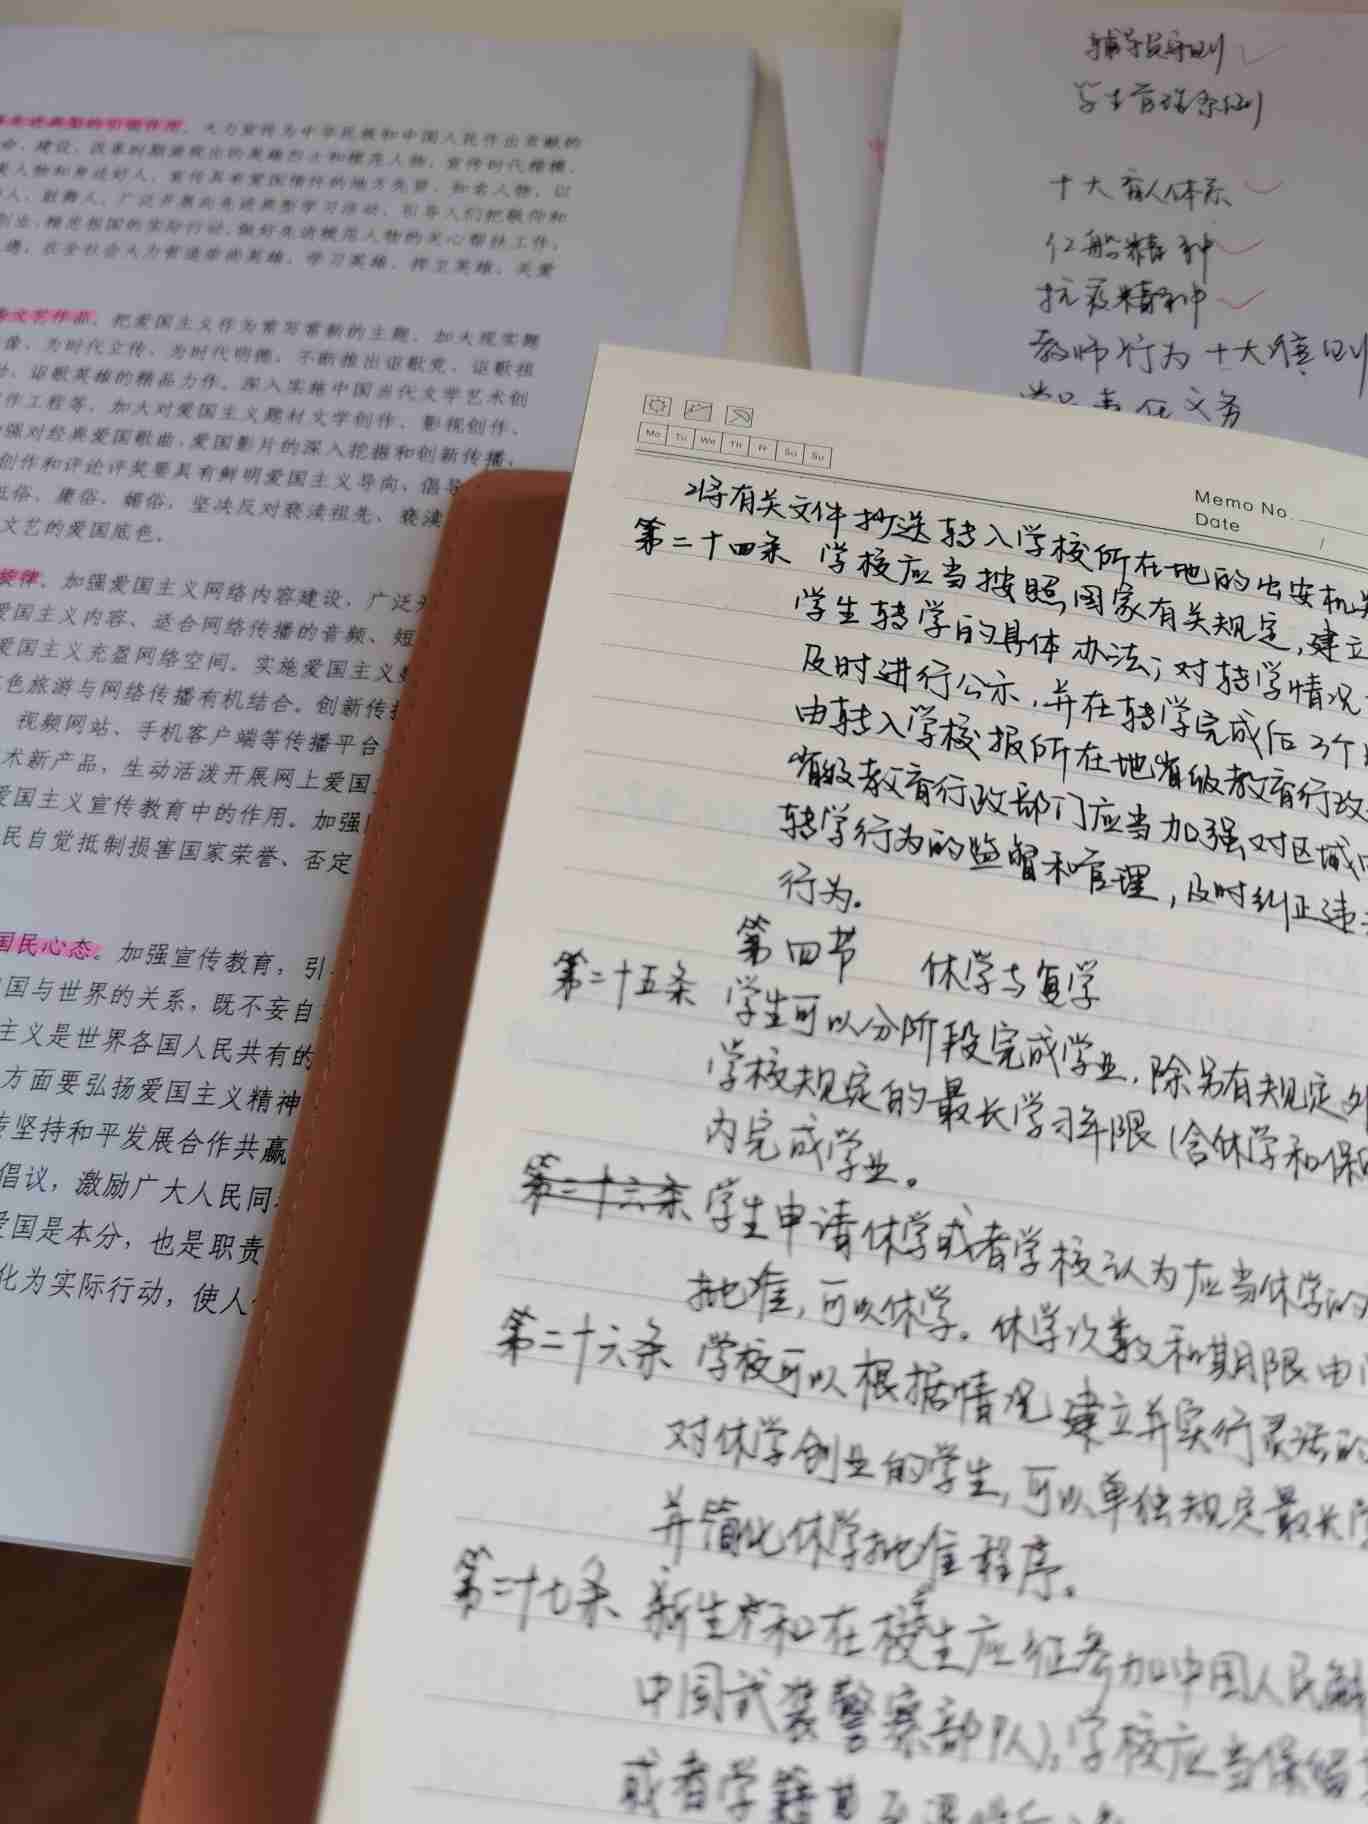 先进典型的引领作用。大力宣传为中华民族和中国人民作出贡献的
命、建设、改革时期涌现出的英雄烈士和模范人物,宣传时代楷模、
人物和身边好人,宣传具有爱国情怀的地方先贤、知名人物,以
人、鼓舞人。广泛开展向先进典型学习活动,引导人们把敬仰和
创业、精忠报国的实际行动。做好先进模范人物的关心帮扶工作,
遇,在全社会大力营造崇尚英雄、学习英雄、捍卫英雄、关爱
文艺作品。把爱国主义作为常写常新的主题,加大现实题
像、为时代立传、为时代明德,不断推出讴歌党、讴歌祖
讴歌英雄的精品力作。深入实施中国当代文学艺术创
作工程等,加大对爱国主义题材文学创作、影视创作、
强对经典爱国歌曲、爱国影片的深入挖掘和创新传播,
创作和评论评奖要具有鲜明爱国主义导向,倡导
低俗、庸俗、媚俗,坚决反对亵渎祖先、亵渎
文艺的爱国底色。
旋律。加强爱国主义网络内容建设,广泛开
爱国主义内容、适合网络传播的音频、短
爱国主义充盈网络空间。实施爱国主义
色旅游与网络传播有机结合。创新传
视频网站、手机客户端等传播平台
术新产品,生动活泼开展网上爱国
爱国主义宣传教育中的作用。加强
民自觉抵制损害国家荣誉、否定
国民心态。加强宣传教育,引
国与世界的关系,既不妄自
主义是世界各国人民共有的
方面要弘扬爱国主义精神
坚持和平发展合作共赢
倡议,激励广大人民同
爱国是本分,也是职责
化为实际行动,使人
辅导员守则
学生管理条例
十大育人体系
红船精神
抗疫精神
教师行为十大准则
责任义务
Mo Tu We Th Fr Sa Su
Memo No.
Date /
将有关文件抄送转入学校所在地的公安机关
第二十四条 学校应当按照国家有关规定,建立
学生转学的具体办法;对转学情况
及时进行公示,并在转学完成后3个
由转入学校报所在地省级教育行政
省级教育行政部门应当加强对区域
转学行为的监督和管理,及时纠正违
行为。
第四节 休学与复学
第二十五条 学生可以分阶段完成学业,除另有规定外
学校规定的最长学习年限(含休学和保
内完成学业。
第二十六条 学生申请休学或者学校认为应当休学的
批准,可以休学。休学次数和期限由
第二十六条 学校可以根据情况建立并实行灵活的
对休学创业的学生,可以单独规定最长
并简化休学批准程序。
第二十七条 新生和在校生应征参加中国人民解
中国武装警察部队),学校应当保留
或者学籍